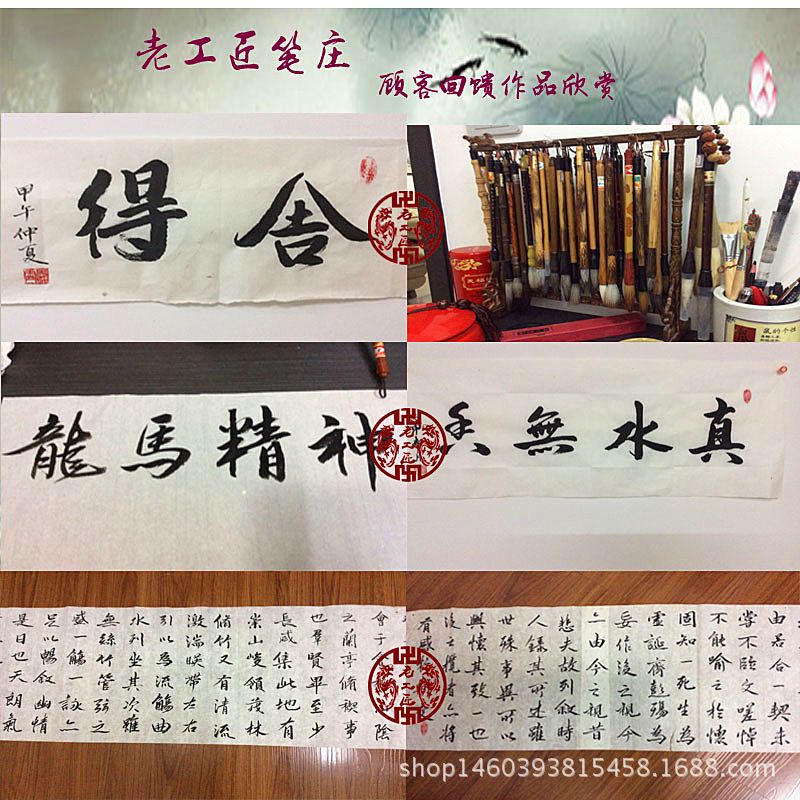 老工匠笔庄
顾客回馈作品欣赏
舍得
甲午仲夏
老工匠
鼠的个性
龍馬精神
真水無香
老工匠
會于
陰
之蘭亭脩禊事
也羣賢畢至少
長咸集此地有
崇山峻領茂林
脩竹又有清流
激湍暎帶左右
引以為流觴曲
水列坐其次雖
無絲竹管弦之
盛一觴一詠亦
足以暢敘幽情
是日也天朗氣
由若合一契未
嘗不臨文嗟悼
不能喻之於懷
固知一死生為
虛誕齊彭殤為
妄作後之視今
亦由今之視昔
悲夫故列敘時
人錄其所述雖
世殊事異所以
興懷其致一也
後之攬者亦將
有感
老工匠
shop1460393815458.1688.com